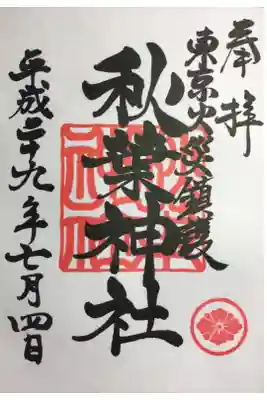 奉拝
東京火災鎮護
秋葉神社
平成二十九年七月四日